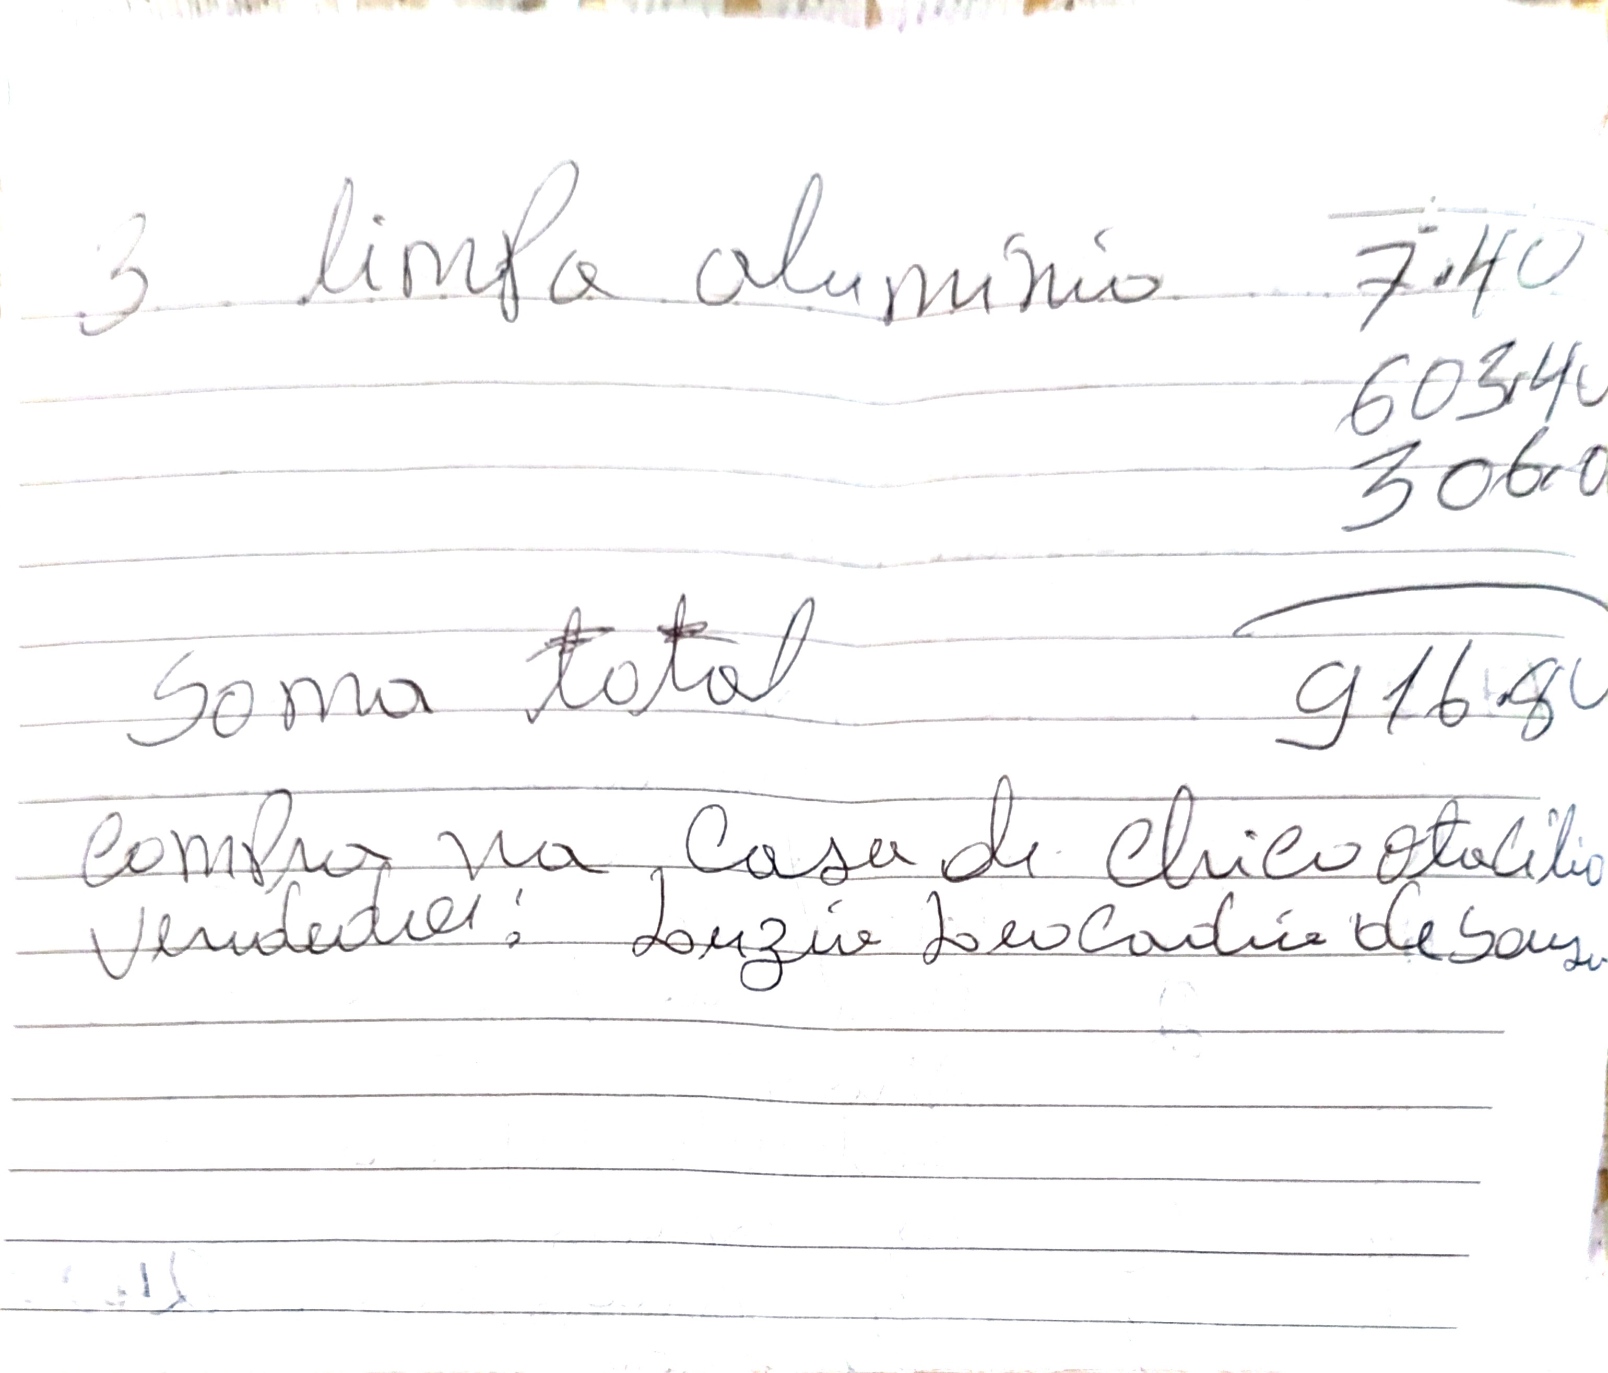 3 limpa aluminio 7.40
603.40
306.0
soma total 916.80
compra na Casa de Chico Otacilio
vendedor: Luzia Leocadia de Souza